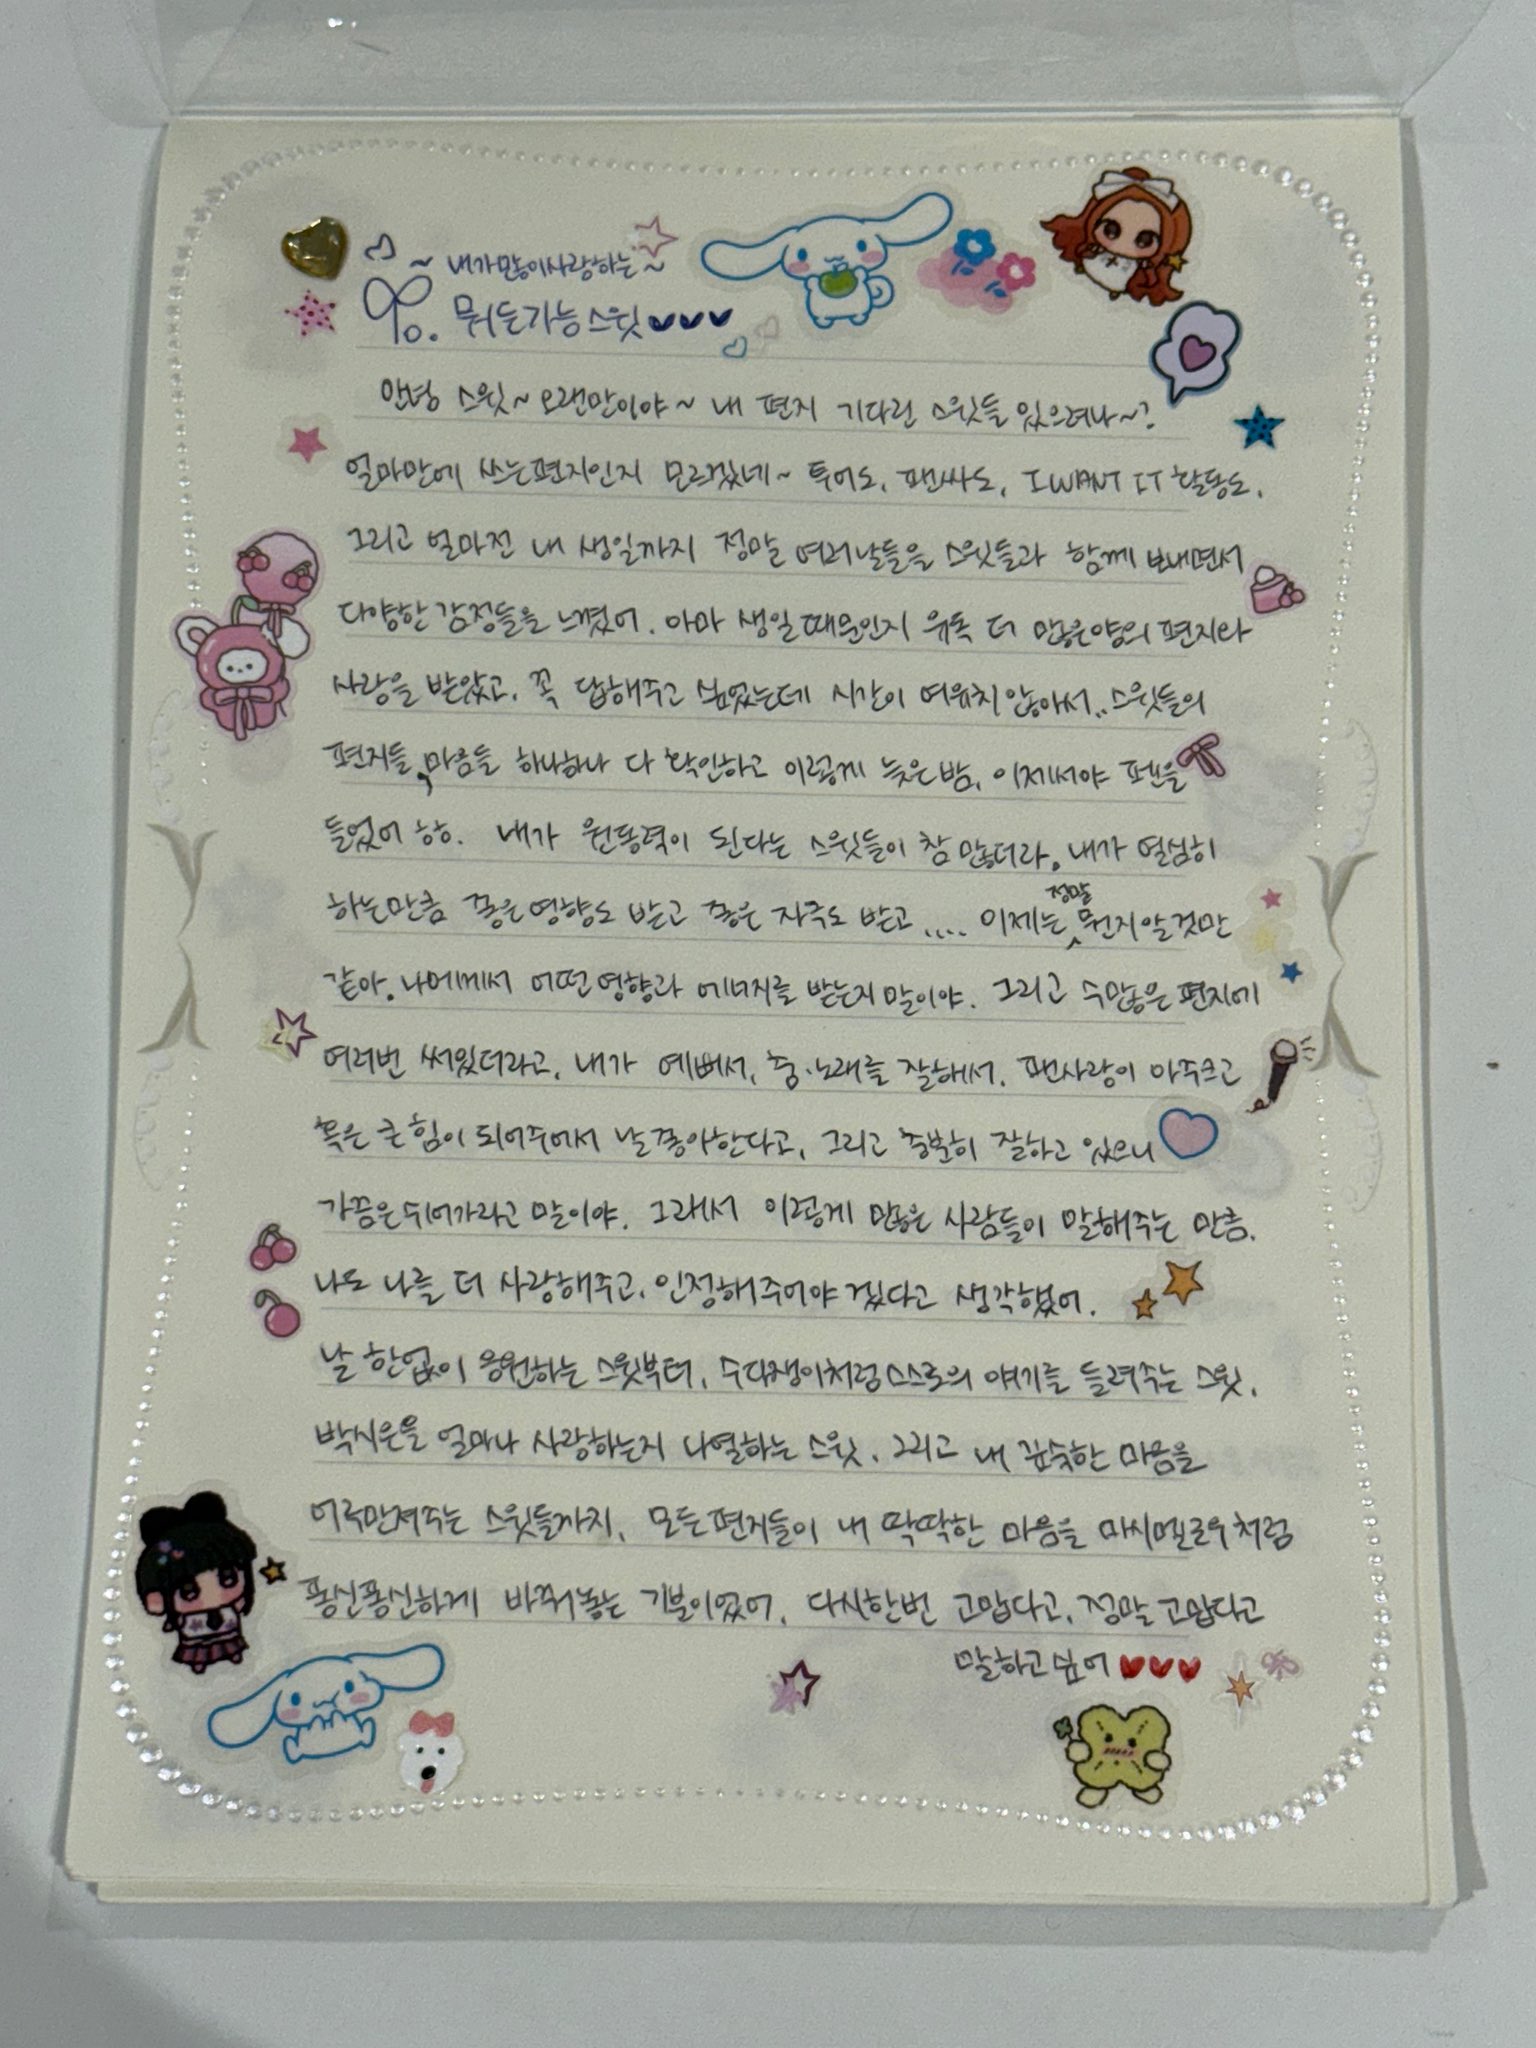 ~ 내가많이사랑하는 ~
To. 뭐든가능스윗♥♥♥
안녕 스윗~ 오랜만이야~ 내 편지 기다린 스윗들 있으려나~?
얼마만에 쓰는편지인지 모르겠네~ 투어도, 팬싸도, I WANT IT 활동도,
그리고 얼마전 내 생일까지 정말 여러날들을 스윗들과 함께 보내면서
다양한 감정들을 느꼈어. 아마 생일때문인지 유독 더 많은양의 편지와
사랑을 받았고, 꼭 답해주고 싶었는데 시간이 여유치 않아서.. 스윗들의
편지들, 마음들 하나하나 다 확인하고 이렇게 늦은밤, 이제서야 펜을
들었어 ㅎㅎ. 내가 원동력이 된다는 스윗들이 참 많더라. 내가 열심히
하는만큼 좋은영향도 받고 좋은 자극도 받고 .... 이제는 정말 뭔지알것만
같아. 나에게서 어떤영향과 에너지를 받는지 말이야. 그리고 수많은 편지에
여러번 써있더라고, 내가 예뻐서, 춤·노래를 잘해서, 팬사랑이 아주크고
혹은 큰 힘이 되어주어서 날 좋아한다고, 그리고 충분히 잘하고 있으니
가끔은 쉬어가라고 말이야. 그래서 이렇게 많은 사람들이 말해주는 만큼,
나도 나를 더 사랑해주고, 인정해주어야겠다고 생각했어.
날 한없이 응원하는 스윗부터, 수다쟁이처럼 스스로의 얘기를 들려주는 스윗,
박시은을 얼마나 사랑하는지 나열하는 스윗, 그리고 내 깊숙한 마음을
어루만져주는 스윗들까지, 모든편지들이 내 딱딱한 마음을 마시멜로우처럼
퐁신퐁신하게 바꿔놓는 기분이었어, 다시한번 고맙다고, 정말 고맙다고
말하고싶어♥♥♥